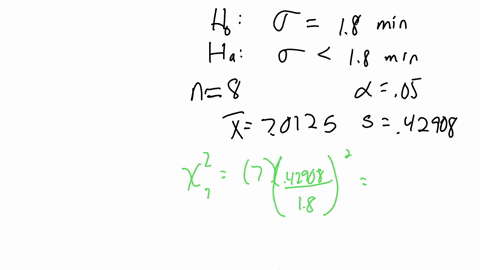 H₀: σ = 1.8 min
Hₐ: σ < 1.8 min
n=8 α=.05
x̄=7.0125 s=.42908
χ²₇ = (7)(.42908/1.8)² =